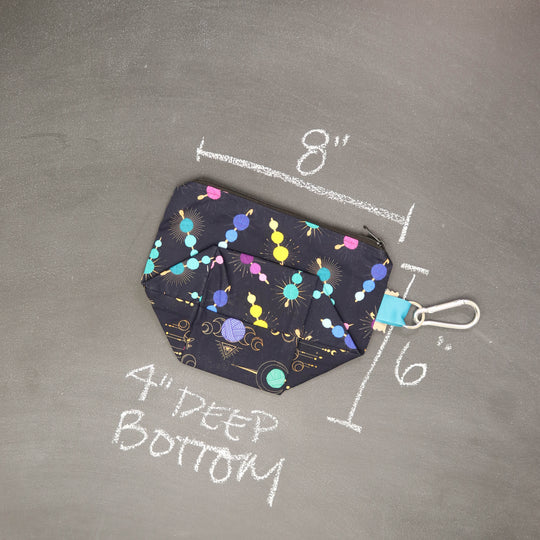 8"
6"
4" DEEP
BOTTOM